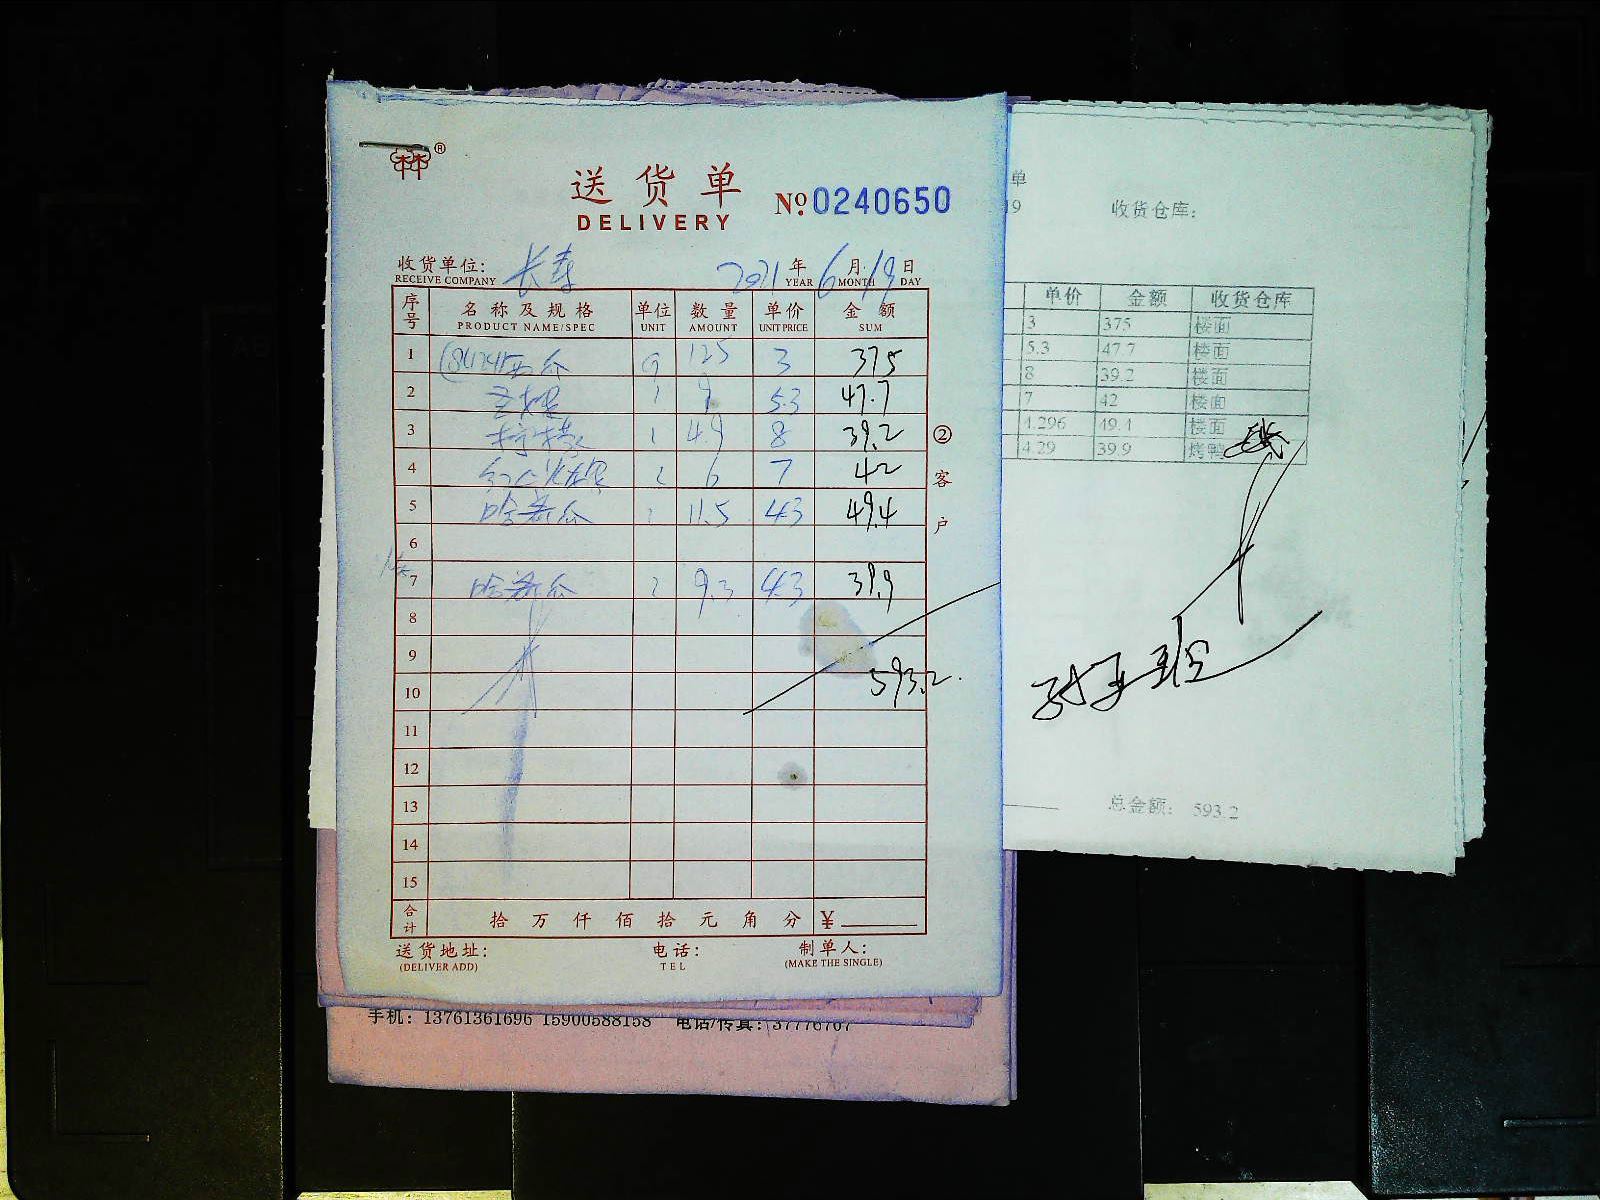 送货单
DELIVERY
№ 0240650
收货单位: 长寿
RECEIVE COMPANY
2021 年 6 月 19 日
YEAR MONTH DAY
序号 名称及规格 单位 数量 单价 金额
PRODUCT NAME/SPEC UNIT AMOUNT UNIT PRICE SUM
1 (8424西瓜 125 3 375
2 9 5.3 47.7
3 柠檬 4.9 8 39.2
4 红心火龙果 6 7 42
5 哈蜜瓜 11.5 4.3 49.4
6
7 哈蜜瓜 9.3 4.3 39.9
8
9
10 593.2
11
12
13
14
15
合计 拾 万 仟 佰 拾 元 角 分 ¥
送货地址: 电话: 制单人:
(DELIVER ADD) TEL (MAKE THE SINGLE)
②客户
手机: 13761361696 15900588158 电话/传真: 37776707
单
19 收货仓库:
单价 金额 收货仓库
3 375 楼面
5.3 47.7 楼面
8 39.2 楼面
7 42 楼面
4.296 49.4 楼面
4.29 39.9 烤鸭
总金额: 593.2